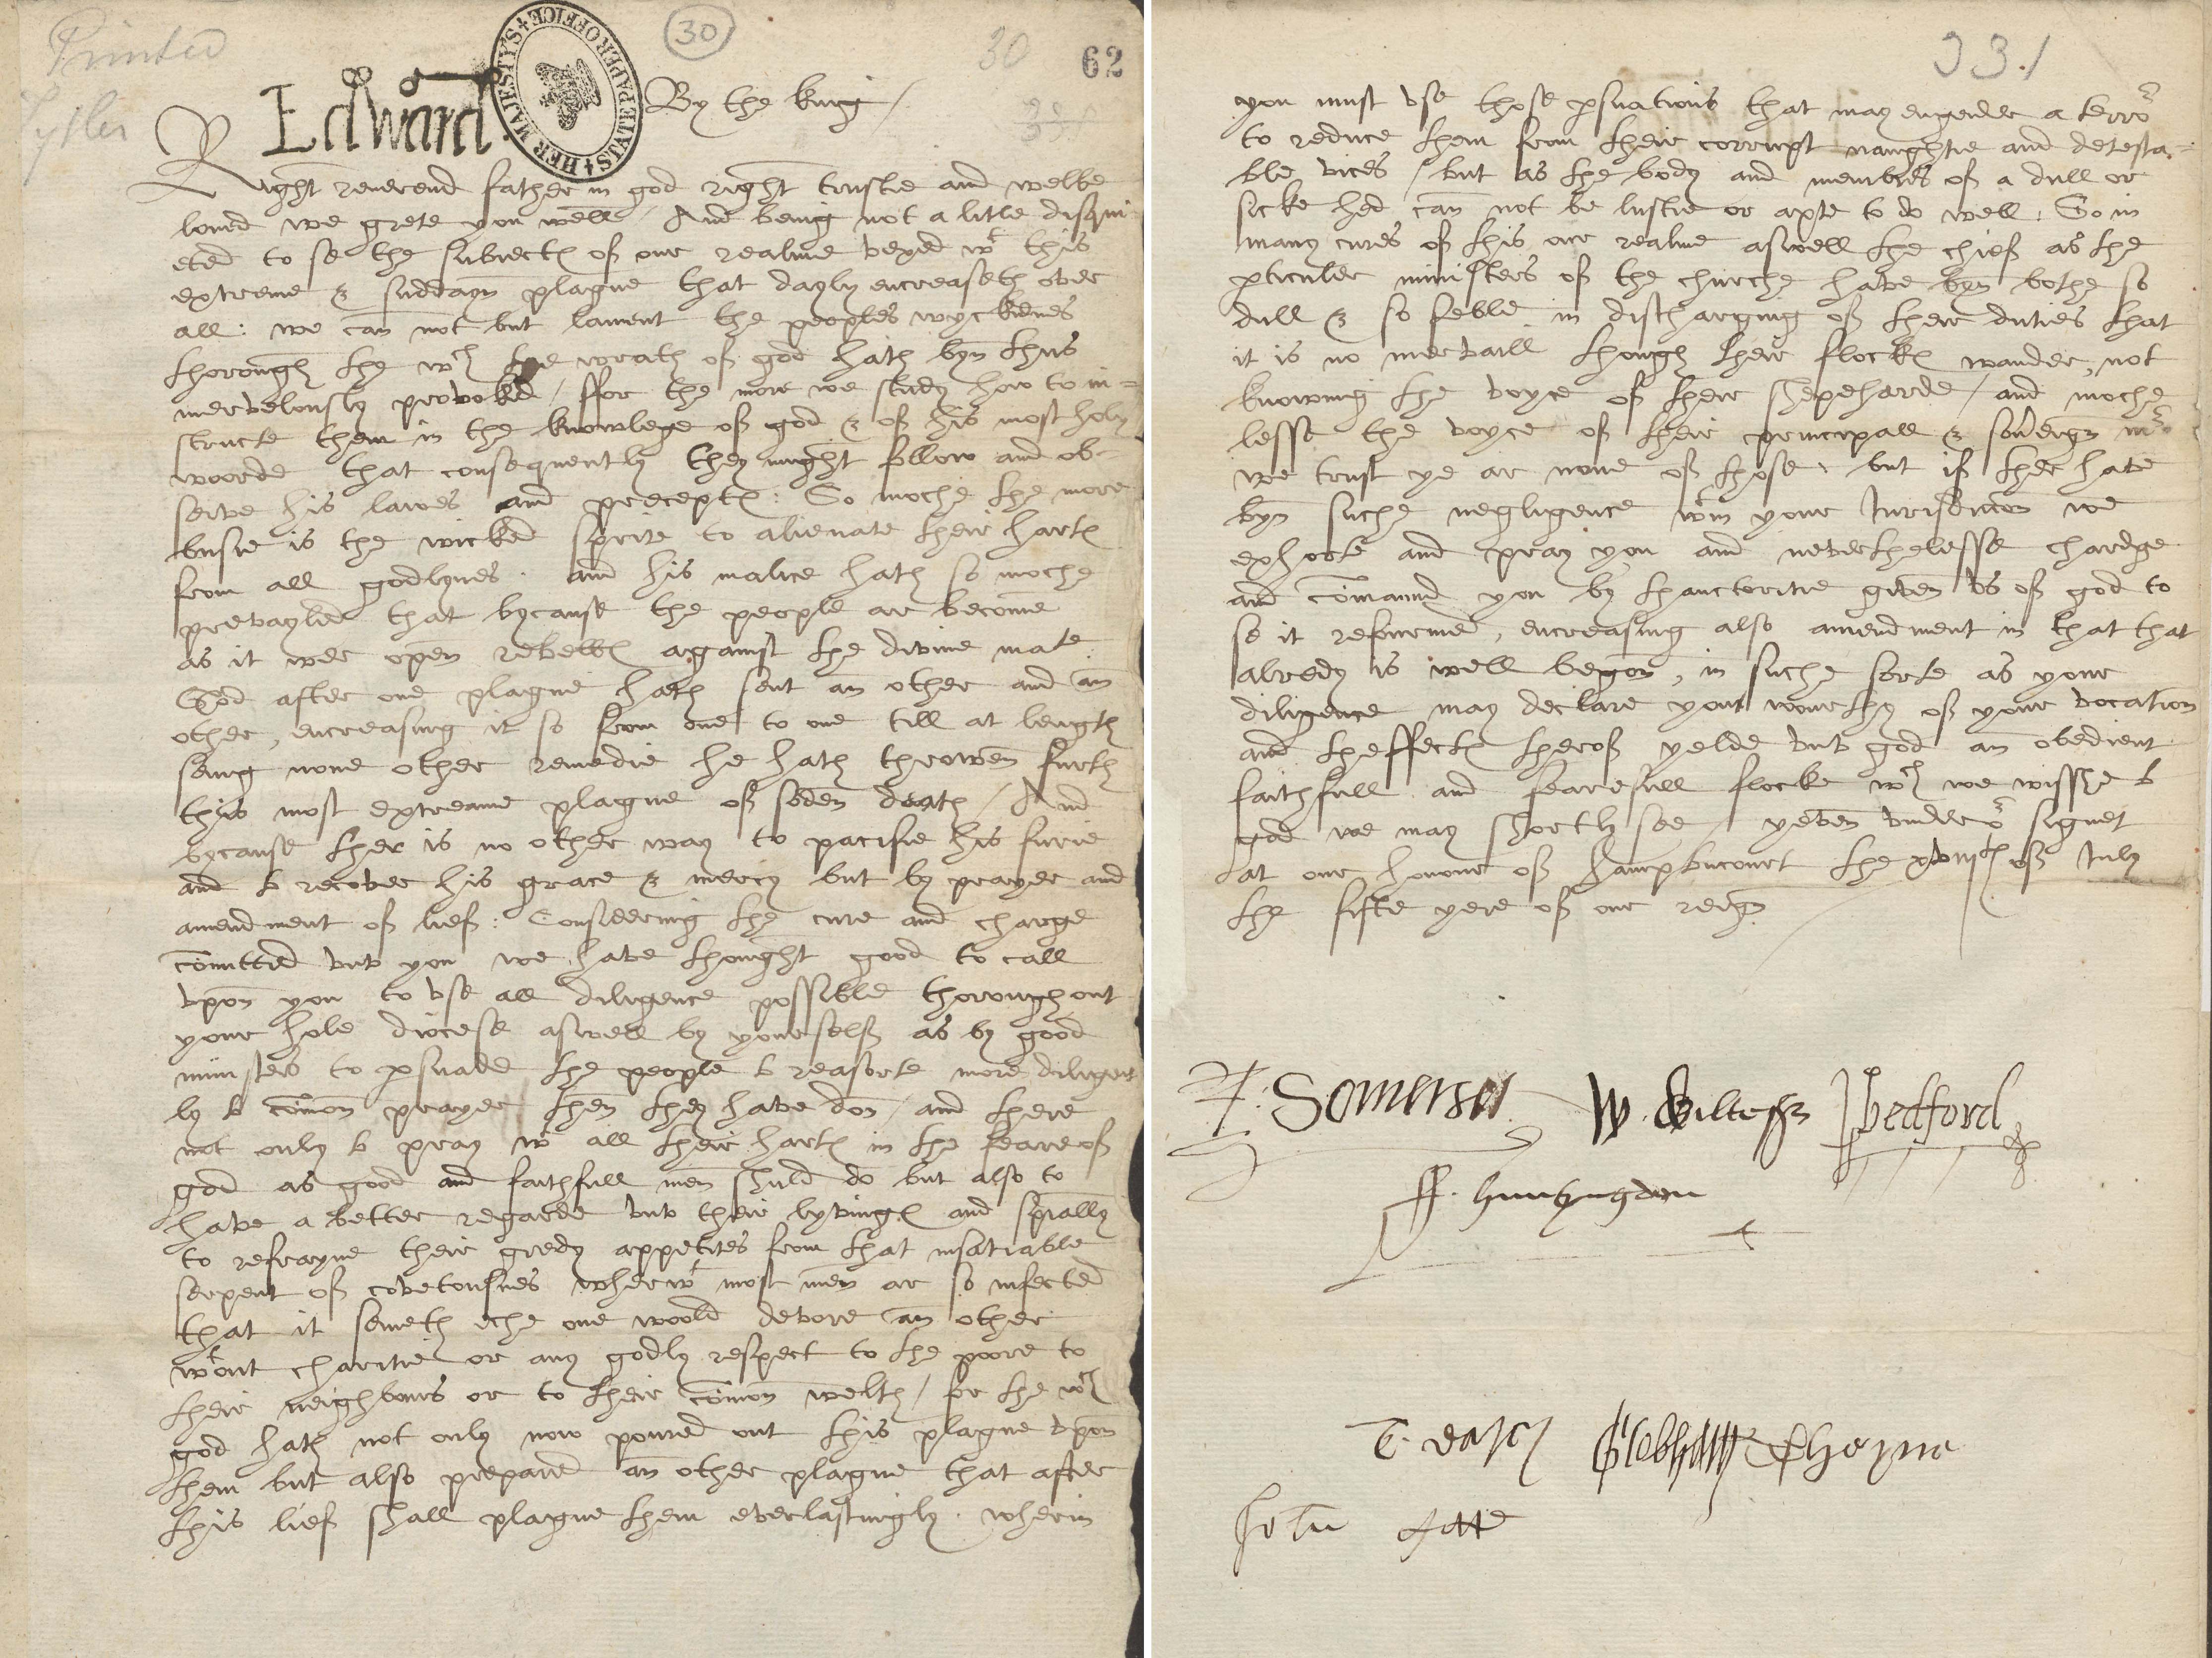 Printed
Tytler
30
30
62
HER MAJESTYS STATE PAPER OFFICE
Edward
By the king /
Right reverend father in god right trustie and welbe
loued we grete you well / And being not a litle disqui
eted to se the subiectes of our realme vexed wt this
extreme & suddayn plague that dayly encreaseth over
all : we can not but lament the peoples wyckednes
thorough the wch the wrath of god hath byn thus
mervelously provoked / ffor the more we study how to in=
structe them in the knowlege of god & of his most holy
woorde that consequently they might follow and ob=
serve his lawes and preceptes : So moche the more
busie is the wicked sprite to alienate their hartes
from all godlynes . and his malice hath so moche
prevayled that bycause the people ar become
as it wer open rebelles against the divine mate .
God after one plague hath sent an other and an
other , encreasing it so from one to one till at length
seing none other remedie he hath throwen furth
this most extreame plague of soden death / And
bycause ther is no other way to pacifie his furie
and to recover his grace & mercy but by prayer and
amendment of lief : Considering the cure and charge
comitted vnto you we have thought good to call
vpon you to vse all diligence possible thoroughout
your hole diocese aswell by yourself as by good
ministers to psuade the people to reasorte more diligent
ly to comon prayer then they have don / and there
not only to pray wt all their hartes in the feare of
god as good and faithfull men shuld do but also to
have a better regarde vnto their lyvinges and spially
to refrayne their gredy appetites from that insatiable
serpent of covetousnes wherwt most men ar so infected
that it semeth eche one woold devore an other
wtout charitie or any godly respect to the poore to
their neighbours or to their comon welth / for the wch
god hath not only now poured out this plague vpon
them but also prepared an other plague that after
this lief shall plague them everlastingly . wherin
331
you must vse those psuations that may engendre a terror
to reduce them from their corrupt naughtie and detesta=
ble vices / but as the body and membres of a dull or
sicke hed can not be lustie or apte to do well . So in
many cures of this our realme aswell the chief as the
pticuler ministers of the churche have byn bothe so
dull & so feble in discharging of their duties that
it is no mervaill though their flockes wander , not
knowing the voyce of their shepeharde / and moche
lesse the voyce of their principall & soverayn mr .
we trust ye ar none of those : but if ther have
byn suche negligence wtin your Iurisdiction we
exhorte and pray you and neverthelesse chardge
and comaund you by thauctoritie given vs of god to
se it refourmed , encreasing also amendment in that that
alredy is well begon , in suche sorte as your
diligence may declare your worthy of your vocation
and theffectes therof yelde vnto god an obedient
faithfull and fearefull flocke wch we wisshe to
god we may shortly see / yeven vnder or signet
at our honour of hamptoncourt the xviijth of Iuly
the fifte yere of our reign
E. Somerset W. Wiltesh Ibedford
ff. huntyngdon
T. darcy GCobham TCheyne
John Gate